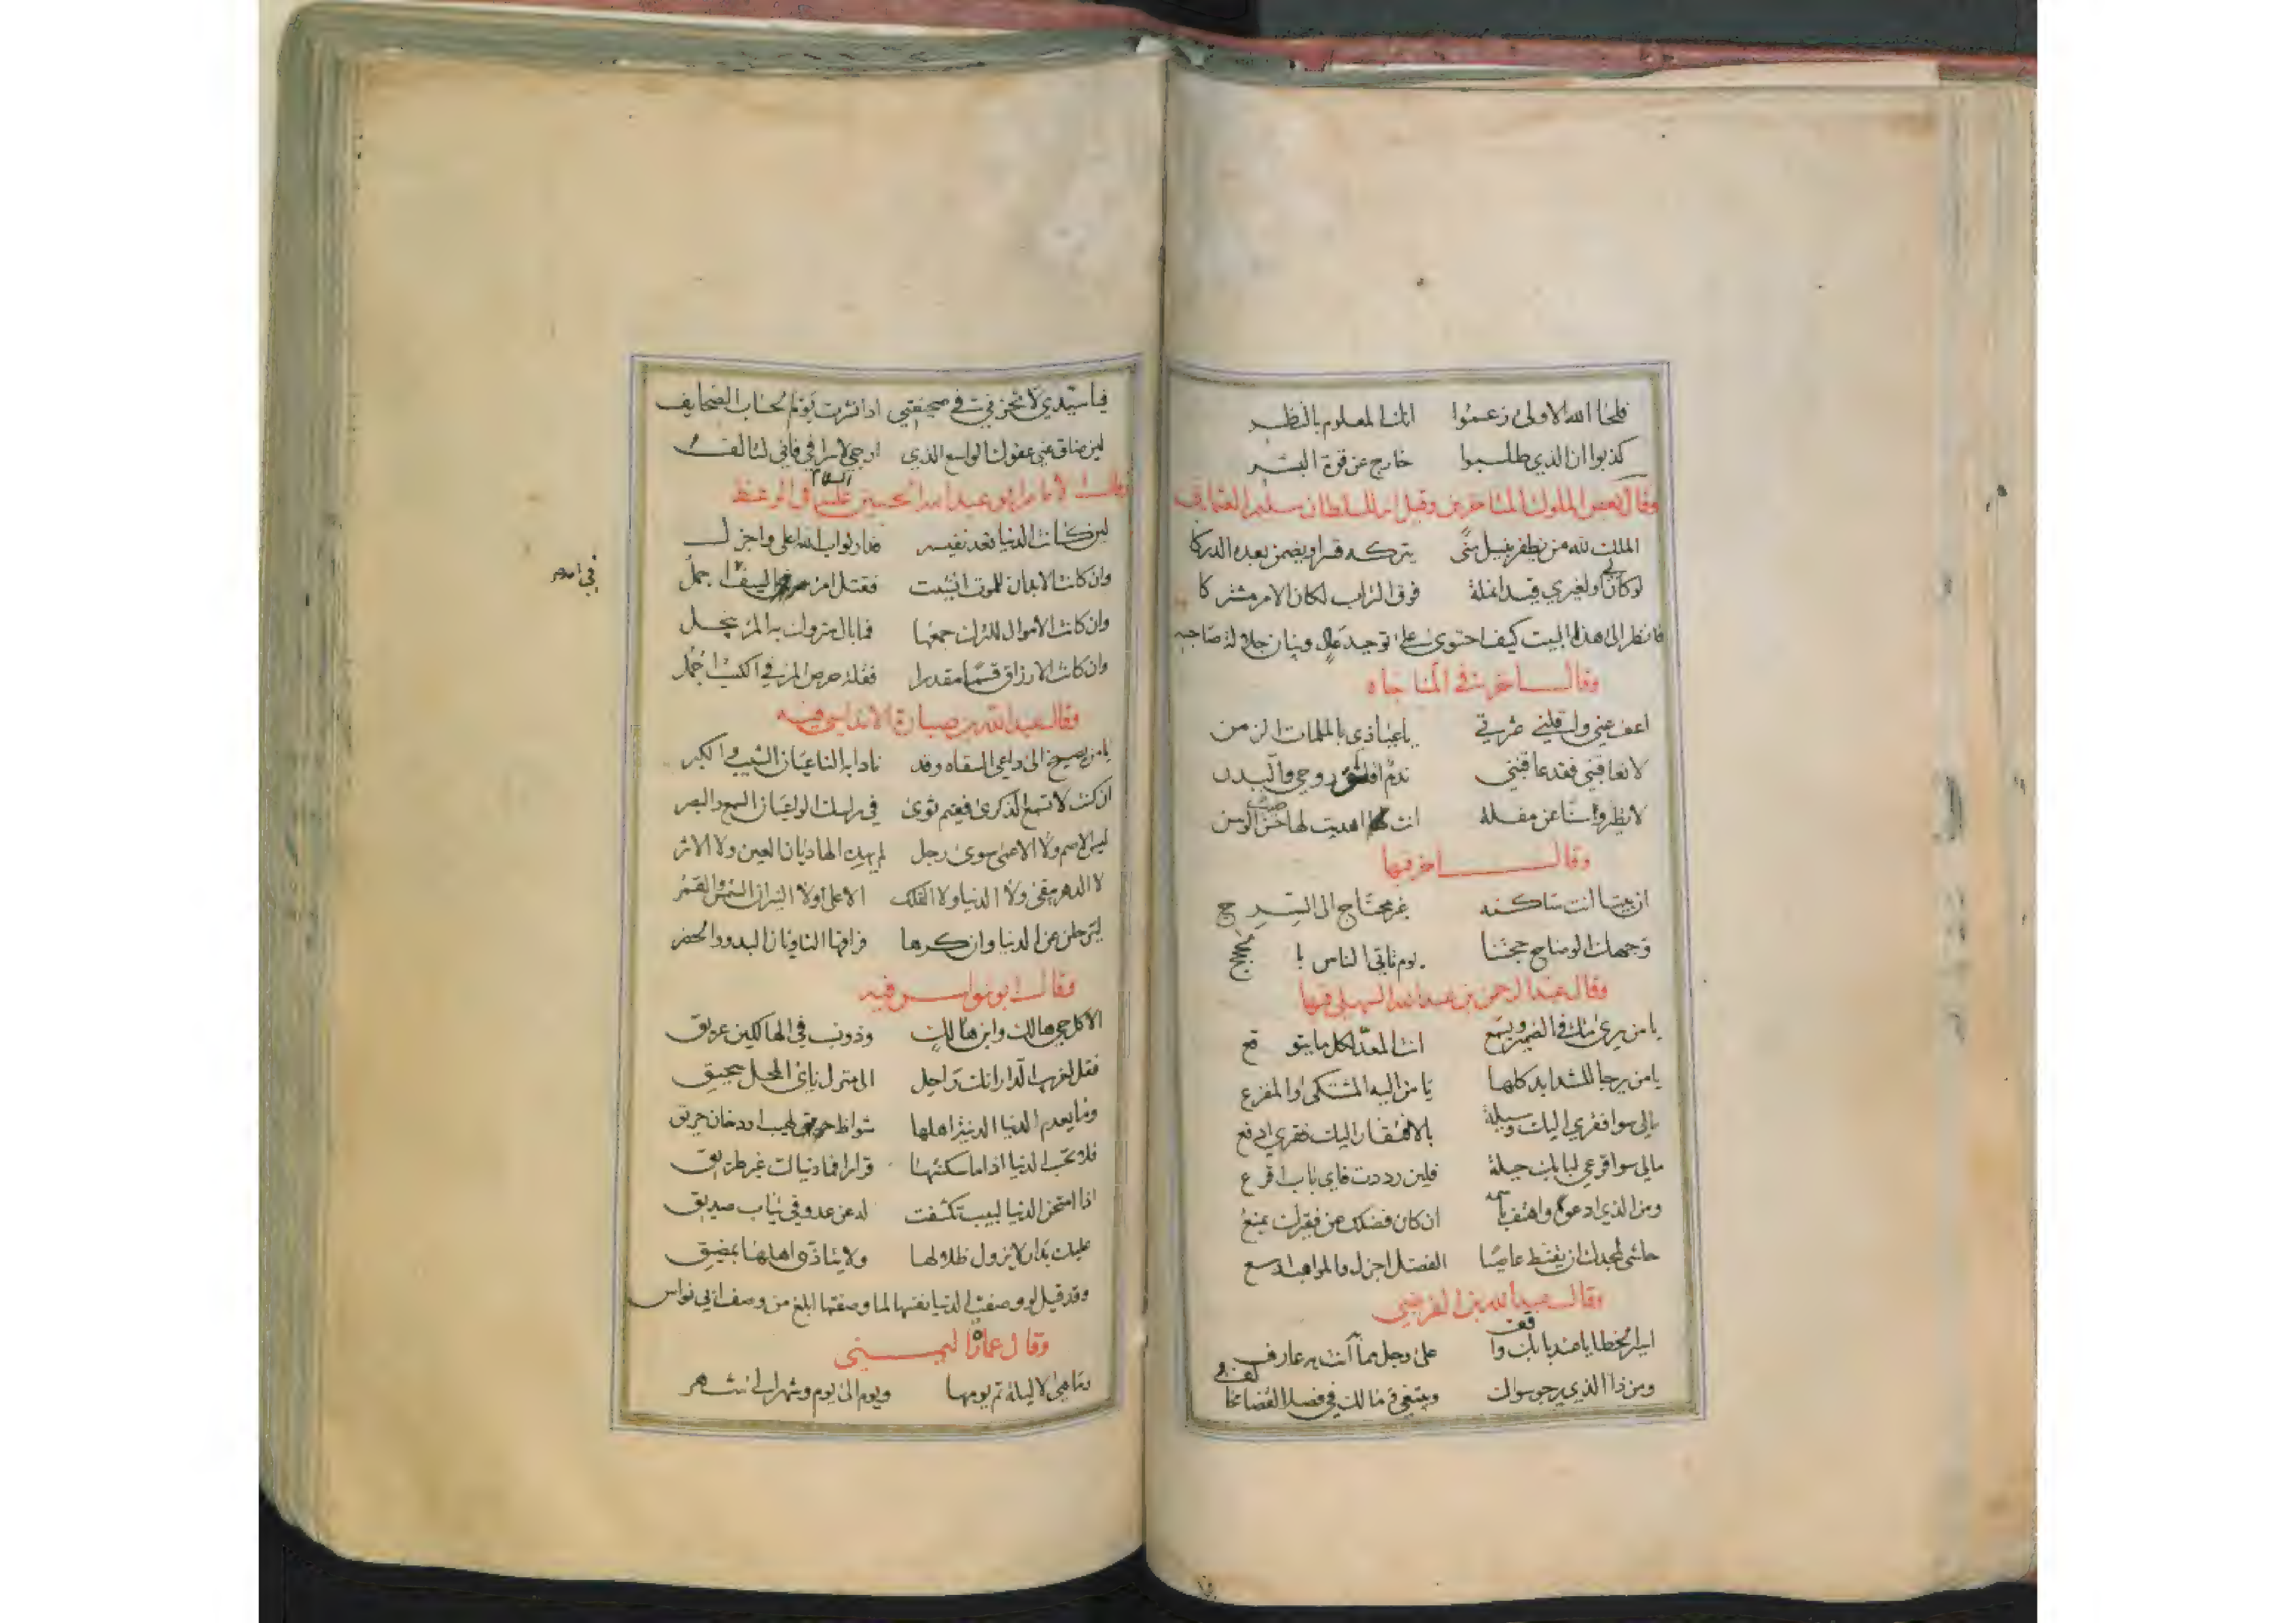 فلحا الله الاولى زعموا انك المعلوم بالنظر
كذبوا ان الذي طلبوا خارج عن قوة البشر
وقال بعض الملوك المتاخرين وقيل انه للسلطان سليم العثماني
الملك لله من يظفر بنيل منًى يتركه قسرا ويضمن بعده الدركا
لو كان لي او لغيري قيد انملة فوق التراب لكان الامر مشتركا
فانظر الى هذا البيت كيف احتوى على توحيد وبيان جلالة صاحبه
وقال اخر في المناجاه
اعف عني واقلني عثرتي يا عياذي بالملمات الزمن
لا تعاقبني فقد عاقبني ندم اقلق روحي والبدن
لا تطير وسنا عن مقلة انت اهديت لها حسن الوسن
وقال اخر فيها
ان بيتا انت ساكنه غير محتاج الى السرج
وجهك الوضاح حجتنا يوم تاتي الناس بالحجج
وقال عبد الرحمن بن عبد الله السهيلي فيها
يا من يرى ما في الضمير ويسمع انت المعد لكل ما يتوقع
يا من يرجا للشدايد كلها يا من اليه المشتكى والمفزع
مالي سوا فقري اليك وسيلة بالافتقار اليك فقري ادفع
مالي سوا قرعي لبابك حيلة فلين رددت فاي باب اقرع
ومن الذي ادعو واهتف باسمه ان كان فضلك عن فقيرك يمنع
حاشى لمجدك ان يقنط عاصيا الفضل اجزل والمواهب اوسع
وقال عبد الله بن الفرضي
اسير الخطايا عند بابك واقف على وجل مما انت به عارف
ومن ذا الذي يرجو سواك ويتقي وما لك في فصل القضا مخالف
فيا سيدي لا تخزني في صحيفتي اذا نشرت يوم الحساب الصحايف
لين ضاق عني عفوك الواسع الذي ارجي لاسرافي فاني لتالف
وقال الامام ابو عبد الله الحسين عليه السلام في الوعظ
لين كانت الدنيا تعد نفيسه فدار ثواب الله اعلى واجزل
وان كانت الابدان للموت انشيت فقتل امرء بالسيف اجمل
في الله
وان كانت الاموال للترك جمعها فما بال متروك به المرء يبخل
وان كانت الارزاق قسما مقدرا فقلة حرص المرء في الكسب اجمل
وقال عبد الله بن صارة الاندلسي فيه
يا من يصيخ الى داعي السقاه وقد نادا به الناعيان الشيب والكبر
ان كنت لا تسمع الذكرى ففيم ثوى في راسك الواعيان السمع والبصر
ليس الاصم ولا الاعمى سوى رجل لم يهده الهاديان العين والاثر
لا الدهر يبقى ولا الدنيا ولا الفلك الاعلى ولا النيران الشمس والقمر
ليرحلن عن الدنيا وان كرها فراقها الثاويان البدو والحضر
وقال ابو نواس فيه
الا كل حي هالك وابن هالك وذو نسب في الهالكين عريق
فقل لغريب الدار انك راحل الى منزل نائي المحل سحيق
وما يعدم الدنيا الدنية اهلها شواظ حريق او دخان حريق
فلا تحسب الدنيا اذا ما سكنتها قرارا فما دنياك غير طريق
اذا امتحن الدنيا لبيب تكشفت له عن عدو في ثياب صديق
عليك بدار لا يزول ظلالها ولا يتاذى اهلها بمضيق
وقد قيل لو وصفت الدنيا نفسها لما وصفتها ابلغ من وصف ابي نواس
وقال عمارة اليمني
وما هي الا ليلة ثم يومها ويوم الى يوم وشهر الى شهر